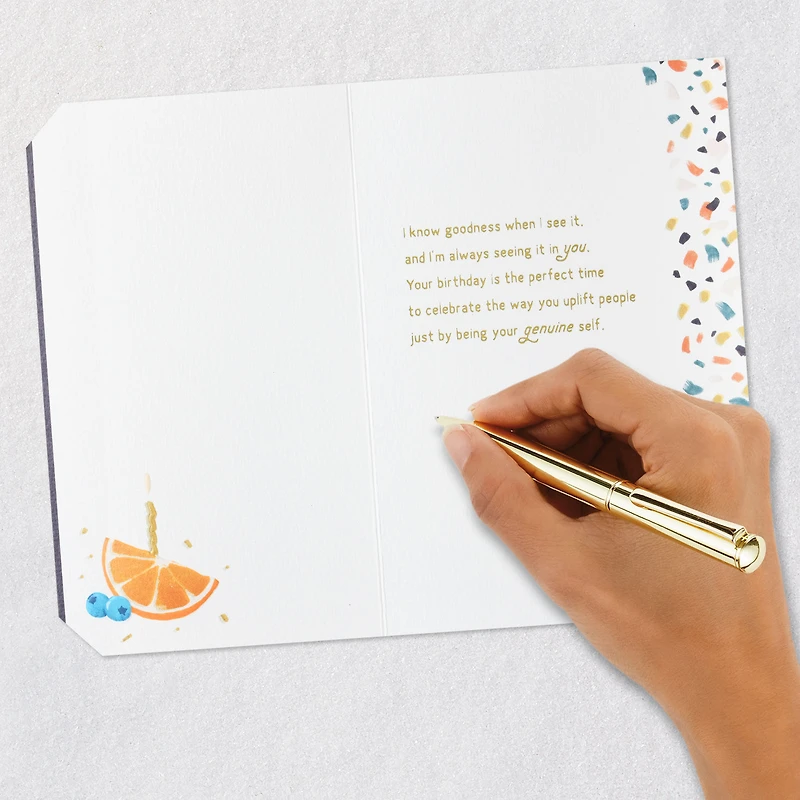 I know goodness when I see it,
and I'm always seeing it in you.
Your birthday is the perfect time
to celebrate the way you uplift people
just by being your genuine self.